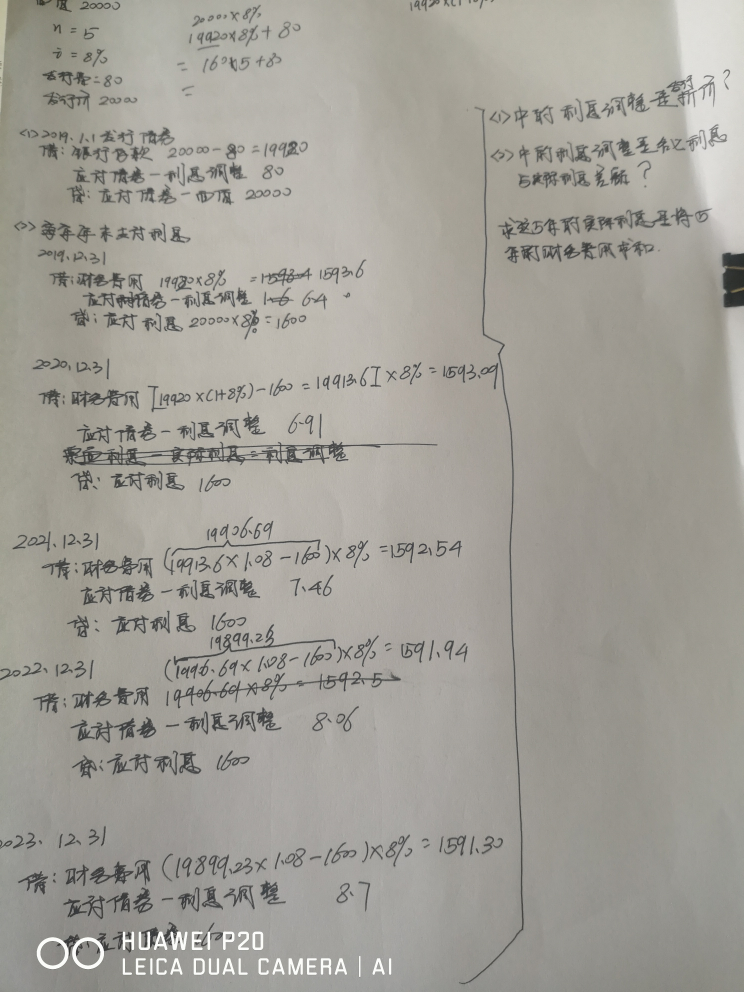 面值 20000
n = 5
i = 8%
发行费=80
发行价 20000
20000×8%
19920×8%+80
= 160×5+80
=
19920×(1+8%)
<1> 2019.1.1 发行债券
借:银行存款 20000-80=19920
应付债券-利息调整 80
贷:应付债券-面值 20000
<2> 每年年末支付利息
2019.12.31
借:财务费用 19920×8% =1593.4 1593.6
应付债券-利息调整 1.6 6.4
贷:应付利息 20000×8%=1600
2020.12.31
借:财务费用 [19920×(1+8%)-1600=19913.6]×8%=1593.09
应付债券-利息调整 6.91
票面利息-实际利息=利息调整
贷:应付利息 1600
2021.12.31
19906.69
借:财务费用 (19913.6×1.08-1600)×8%=1592.54
应付债券-利息调整 7.46
贷:应付利息 1600
19899.23
2022.12.31 (1996.69×1.08-1600)×8%=1591.94
借:财务费用 19906.69×8%=1592.5
应付债券-利息调整 8.06
贷:应付利息 1600
2023.12.31
借:财务费用 (19899.23×1.08-1600)×8%=1591.30
应付债券-利息调整 8.7
贷:应付
<1>中的利息调整是发行折价?
<2>中的利息调整是名义利息
与实际利息差额?
求这5年的实际利息是将四
年的财务费用求和.
HUAWEI P20
LEICA DUAL CAMERA | AI